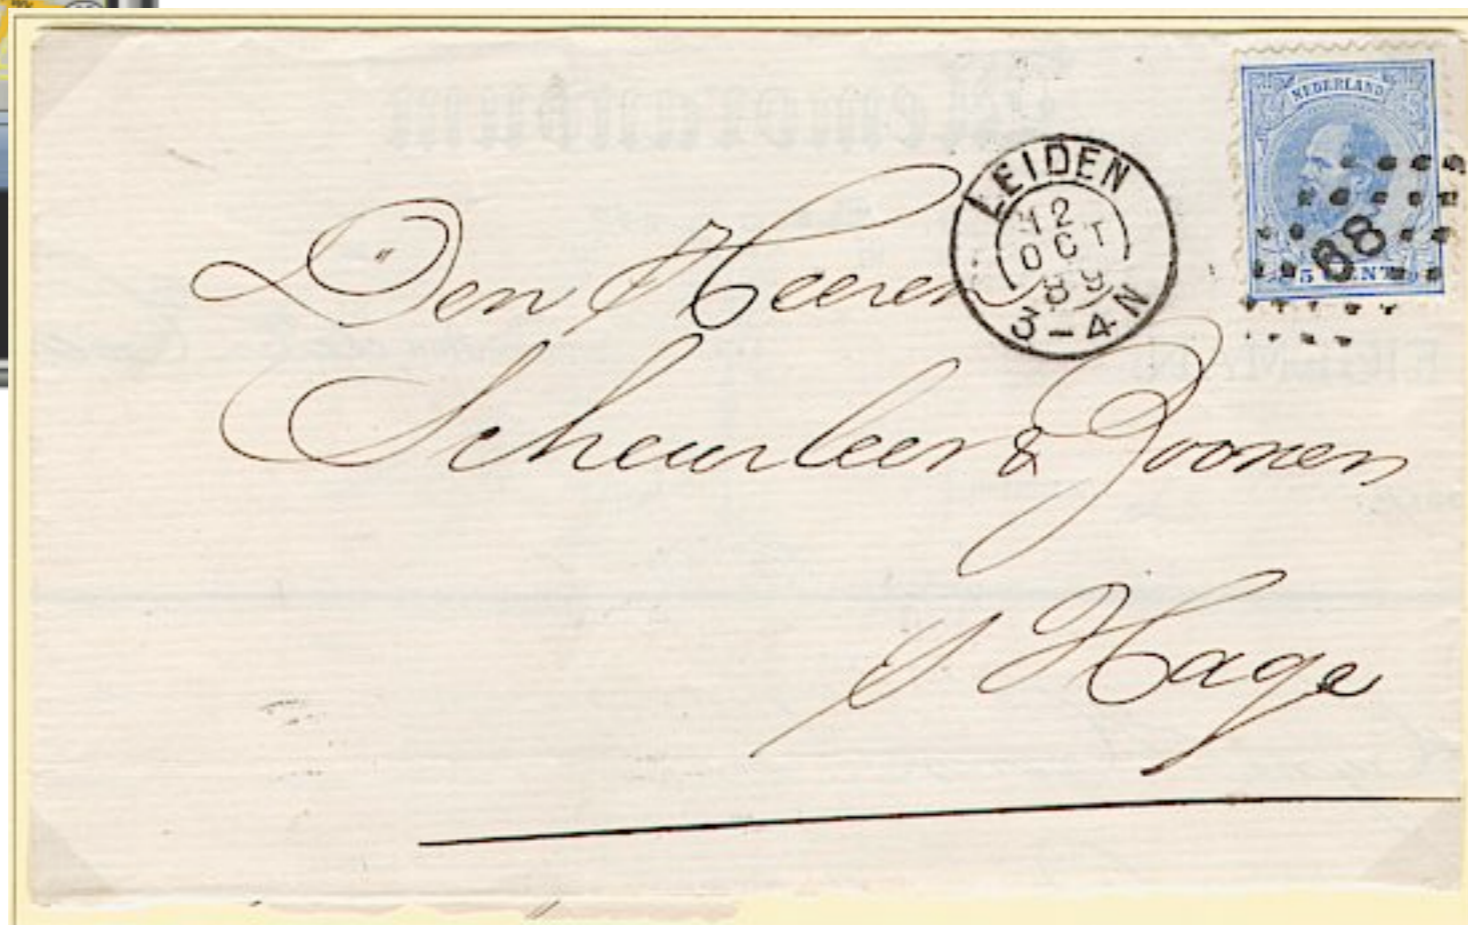 Memorandum
NEDERLAND
5 CENT
68
LEIDEN
12
OCT
89
3-4N
Den Heeren
Scheurleer & Zoonen
s Hage